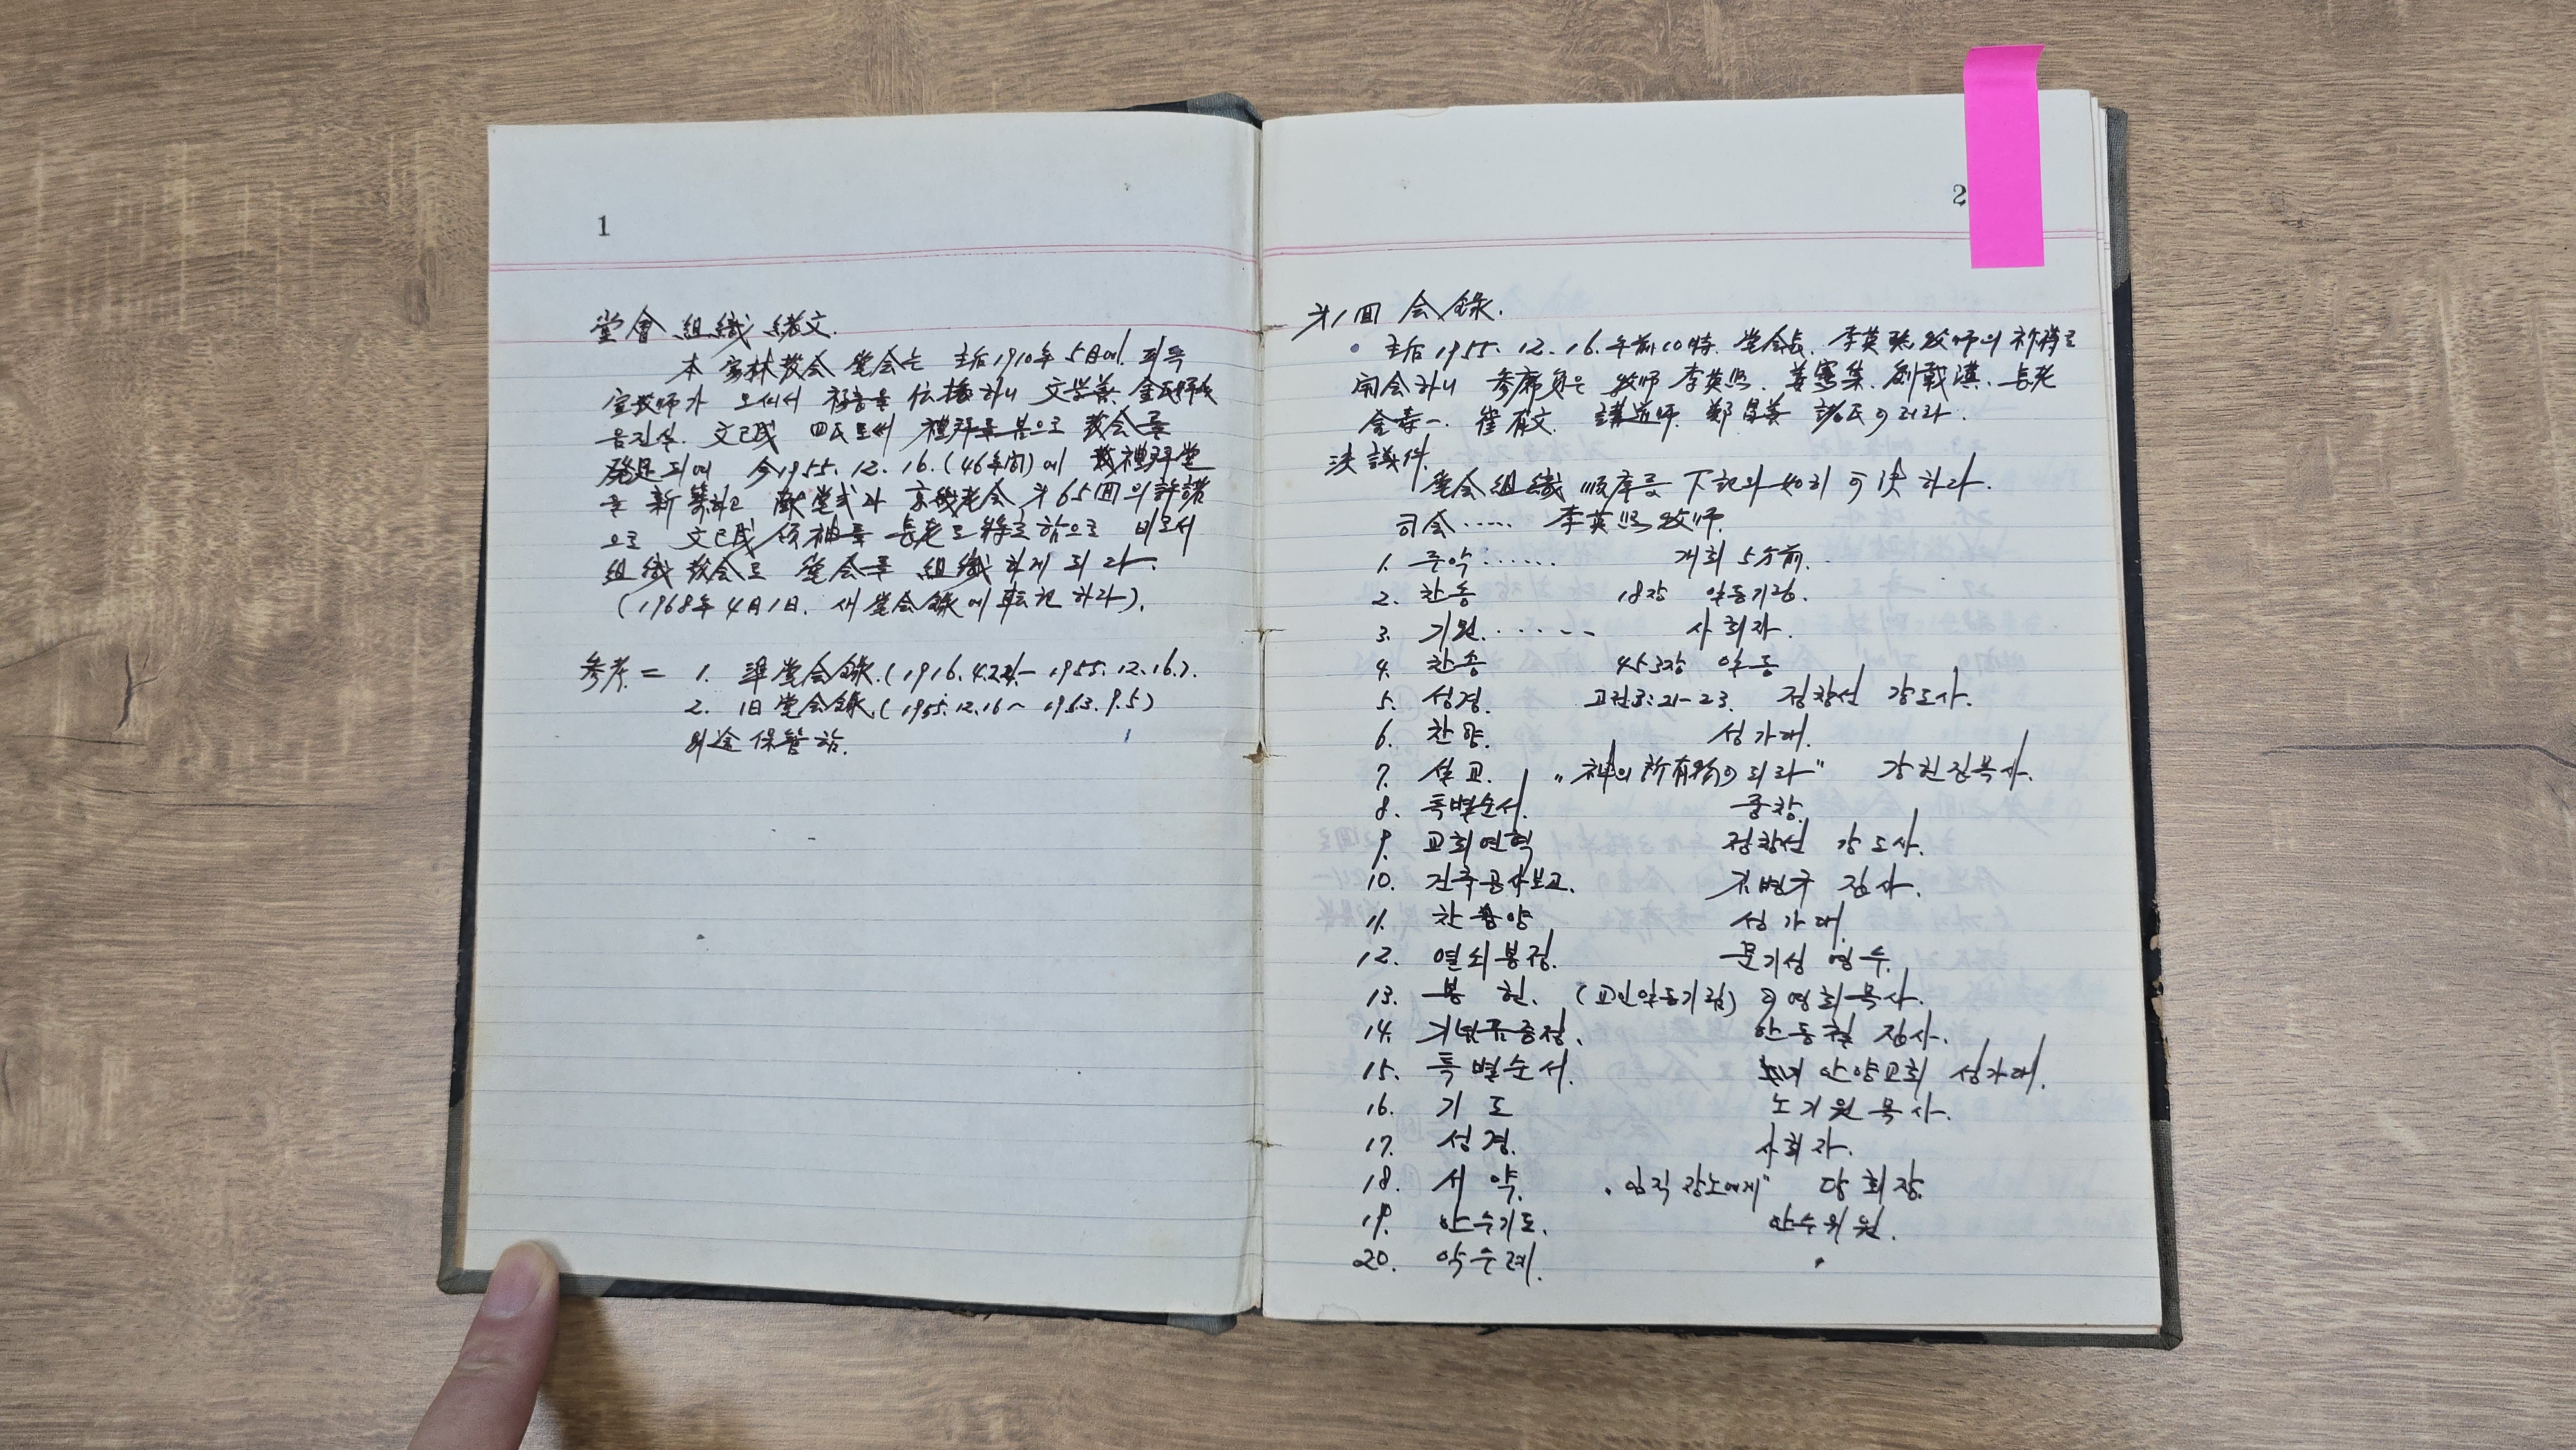 1
堂會 組織 緖文.
本 教会 堂会는 主后 1910年 5月에. 피득
宣敎师가 오셔서 福音을 伝播하니 文 善. 金氏
文己成 四氏로써 禮拜를 봄으로 教会를
発足되며 今 1955. 12. 16. (46年間)에 禮拜堂
을 新築하고 献堂式과 京畿老会 第65回의 許諾
으로 文己成 領袖를 長老로 将로 함으로 비로서
組織 教会로 堂会를 組織하게 되라.
(1968年 4月1日. 새 堂会錄에 転記하라).
参考 = 1. 準堂会錄. (1916. 4.24 - 1955. 12. 16.).
2. 旧堂会錄. (1955. 12. 16 ~ 1963. 9. 5)
別途 保管함.
2
第1回 会錄.
主后 1955. 12. 16. 午前 10時. 堂会長. 李英 牧师의 祈禱로
開会하니 参席員은 牧师 李英 . 姜憲集. 劉載漢. 長老
金壽一. 崔 文. 講道师. 鄭昌善 諸氏이러라.
決議件.
堂会組織 順序를 下記와 如히 可決하라.
司会 ..... 李英 牧师.
1. 주악 ...... 개회 5分前.
2. 찬송 18장 일동기립.
3. 기원. ...... 사회자.
4. 찬송 453장 일동
5. 성경. 고전3:21-23. 정창선 강도사.
6. 찬양. 성가대.
7. 설교. "神의 所有物이 되라" 강헌집목사.
8. 특별순서. 중창.
9. 교회연혁 정창선 강도사.
10. 건축공사보고. 김병규 집사.
11. 찬양 성가대.
12. 열쇠봉정. 문기성 영수.
13. 봉 헌. (교인일동기립) 이영희목사.
14. 기념품증정. 안동철 집사.
15. 특별순서. 안양교회 성가대.
16. 기 도 노기원 목사.
17. 성경. 사회자.
18. 서 약. "임직 장노에게" 당회장.
19. 안수기도. 안수위원.
20. 악수례.